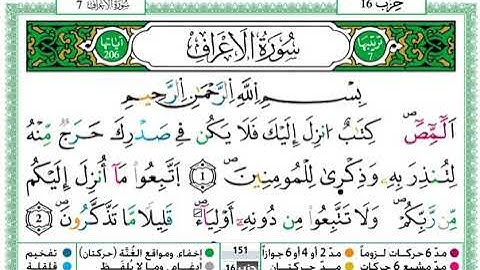 سُورَةُ الأَعْرَافِ 7
حِزْب 16
ترتيبها 7
سُورَةُ الأَعْرَافِ
آياتها 206
بِسْمِ اللَّهِ الرَّحْمَٰنِ الرَّحِيمِ
أَلَٓمِّٓصَٓ كِتَٰبٌ انزِلَ إِلَيْكَ فَلَا يَكُن فِي صَدْرِكَ حَرَجٌ مِّنْهُ
لِتُنذِرَ بِهِۦ وَذِكْرَىٰ لِلْمُومِنِينَ 1 اَتَّبِعُوا مَآ أُنزِلَ إِلَيْكُم
مِّن رَّبِّكُمْ وَلَا تَتَّبِعُوا مِن دُونِهِۦٓ أَوْلِيَآءَ قَلِيلًا مَّا تَذَّكَّرُونَ 2
مدّ 6 حركات لزوماً مدّ 2 أو 4 أو 6 جوازاً 151 إخفاء، ومواقع الغُنَّة (حركتان) تفخيم
مدّ مشبع 6 حركات مدّ حركتان إدغام، وما لا يُلفَظ قلقلة